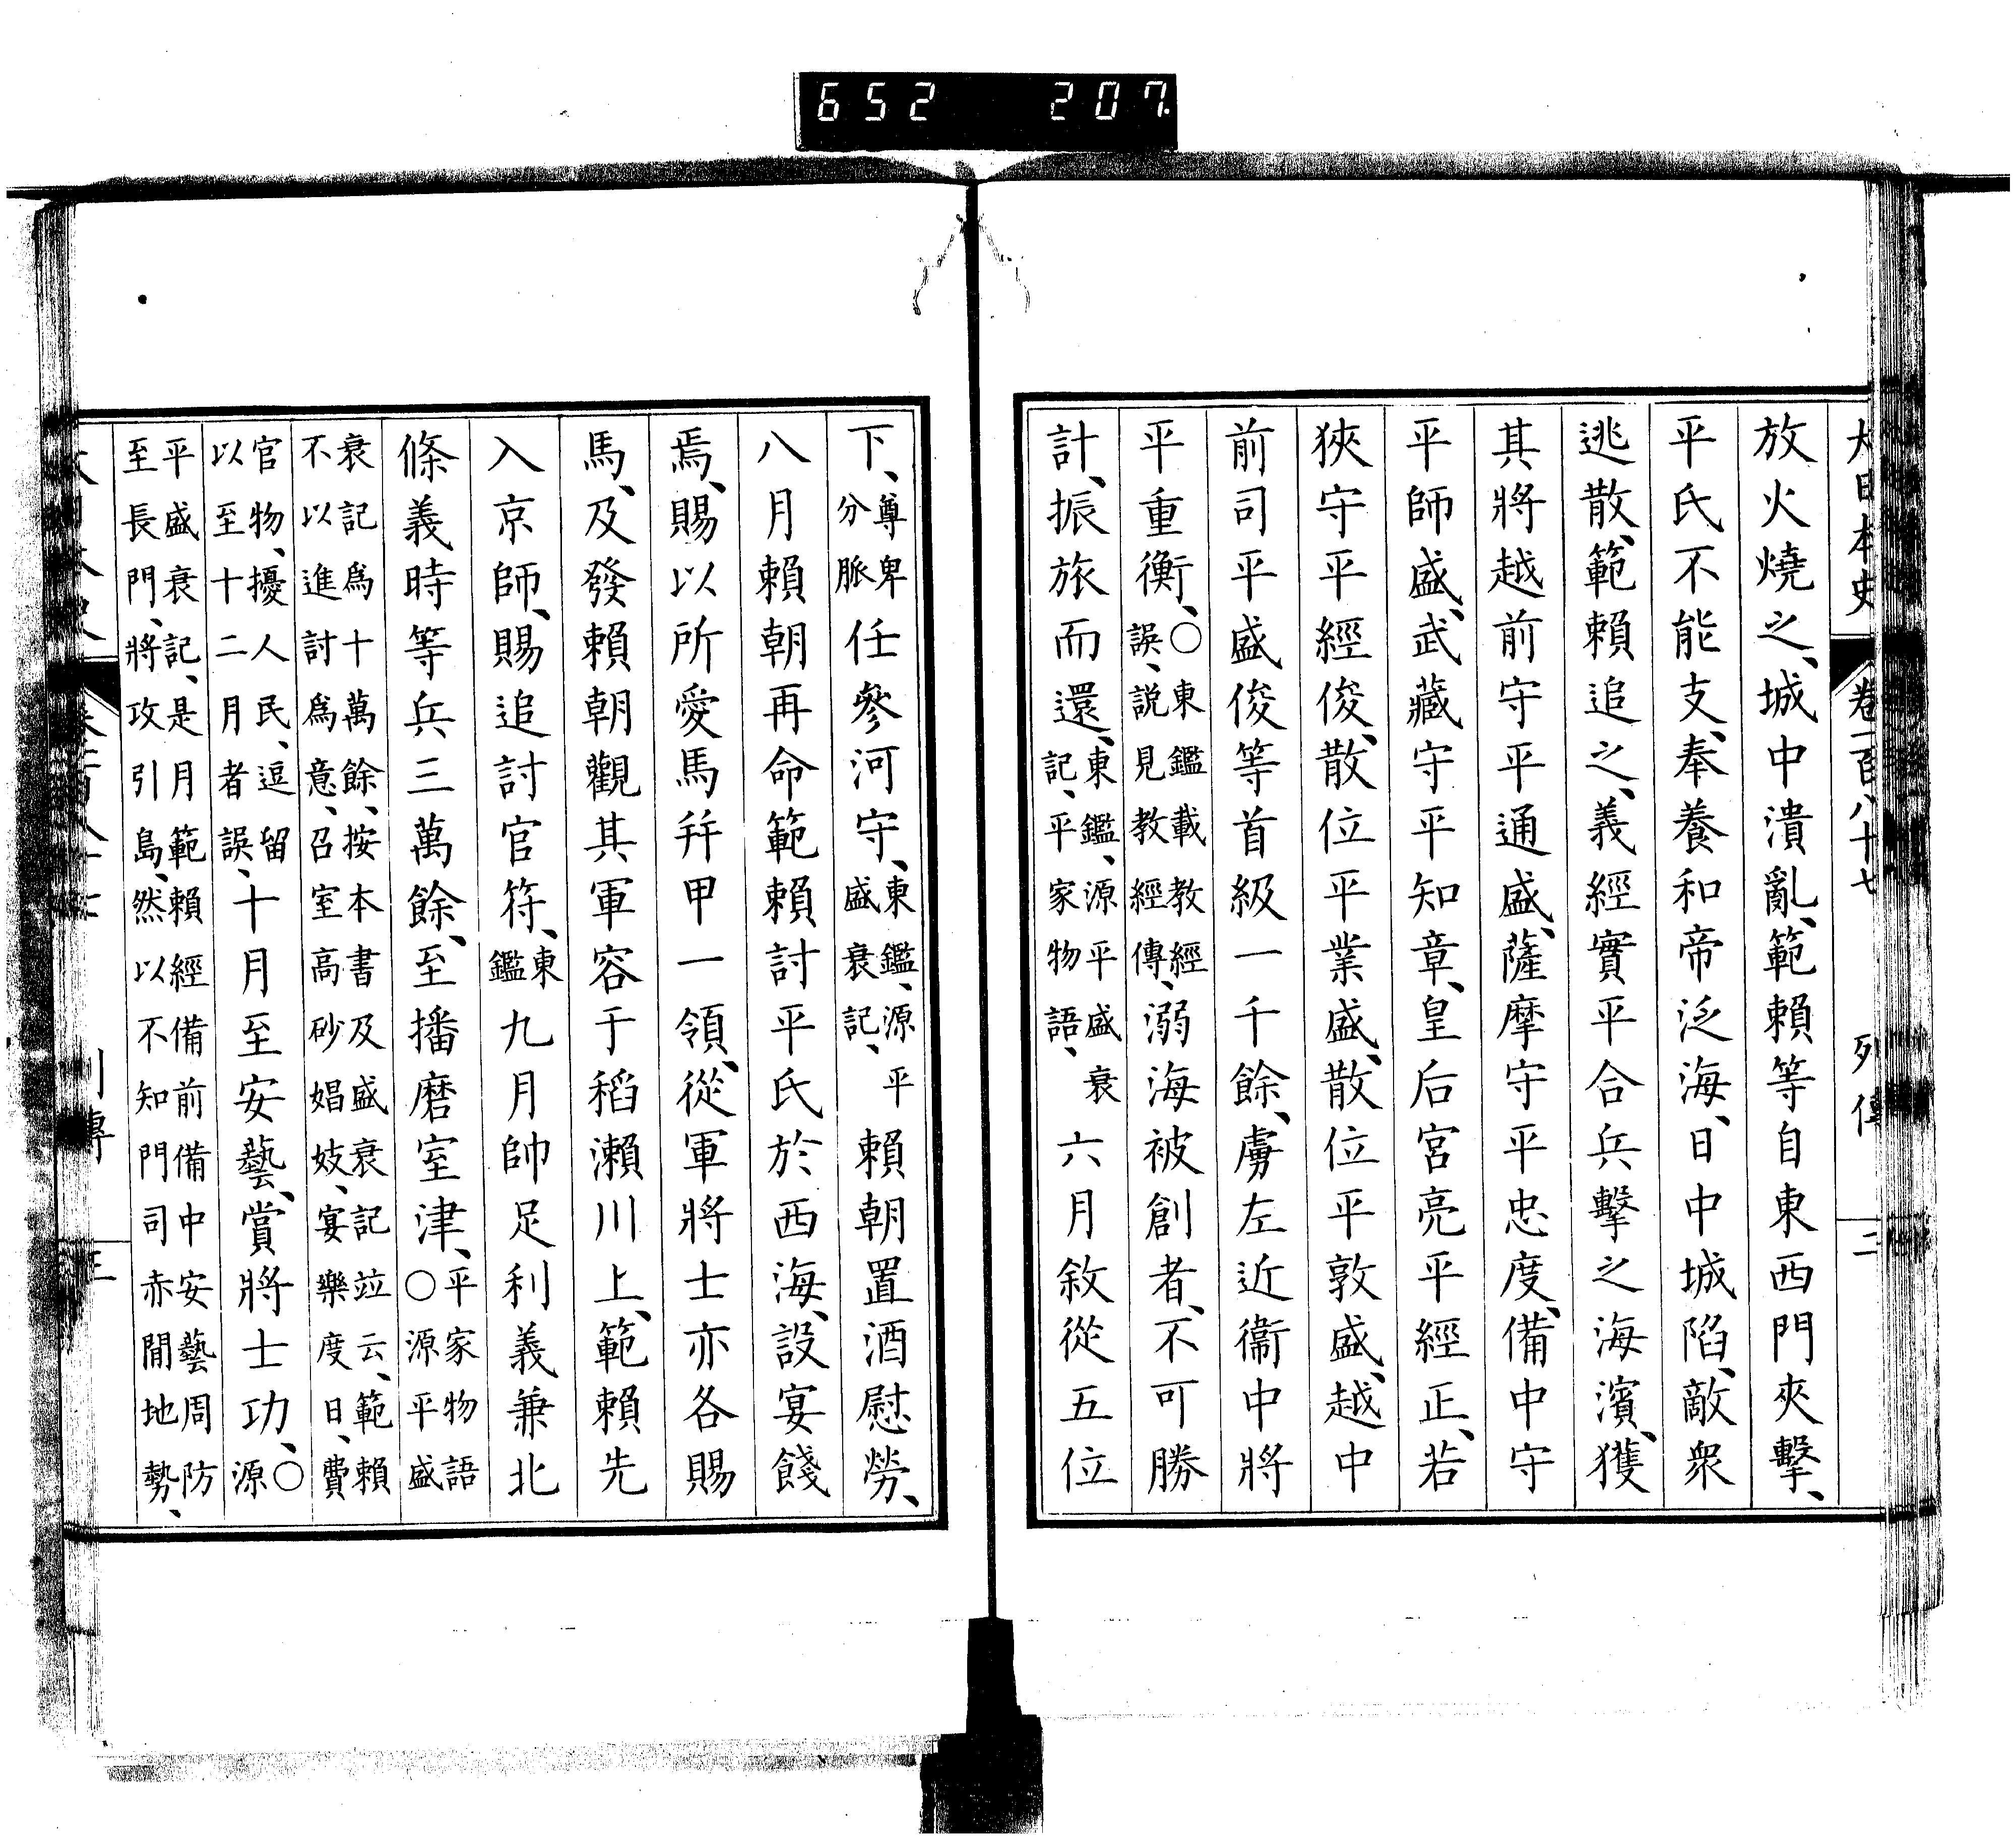 652 207.
大日本史 卷一百八十七 列傳 二
放火燒之、城中潰亂、範賴等自東西門夾擊、
平氏不能支、奉養和帝泛海、日中城陷、敵衆
逃散、範賴追之、義經實平合兵擊之海濱、獲
其將越前守平通盛、薩摩守平忠度、備中守
平師盛、武藏守平知章、皇后宮亮平經正、若
狹守平經俊、散位平業盛、散位平敦盛、越中
前司平盛俊等首級一千餘、虜左近衞中將
平重衡、○東鑑載教經誤、説見教經傳、溺海被創者、不可勝
計、振旅而還、東鑑、源平盛衰記、平家物語、六月敘從五位
下、尊卑分脈任參河守、東鑑、源平盛衰記、賴朝置酒慰勞、
八月賴朝再命範賴討平氏於西海、設宴餞
焉、賜以所愛馬幷甲一領、從軍將士亦各賜
馬、及發賴朝觀其軍容于稻瀨川上、範賴先
入京師、賜追討官符、東鑑九月帥足利義兼北
條義時等兵三萬餘、至播磨室津、○平家物語源平盛
衰記爲十萬餘、按本書及盛衰記竝云、範賴不以進討爲意、召室高砂娼妓、宴樂度日、費
官物、擾人民、逗留以至十二月者誤、十月至安藝、賞將士功、○源
平盛衰記、是月範賴經備前備中安藝周防至長門、將攻引島、然以不知門司赤間地勢、